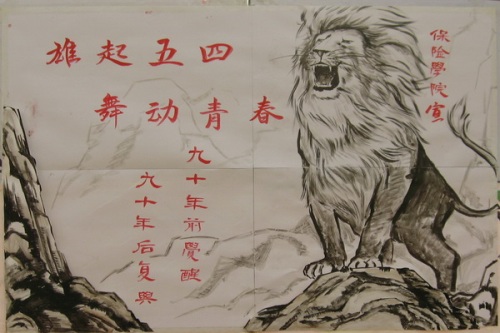 雄起五四
舞动青春
九十年前覺醒
九十年后复興
保險學院宣